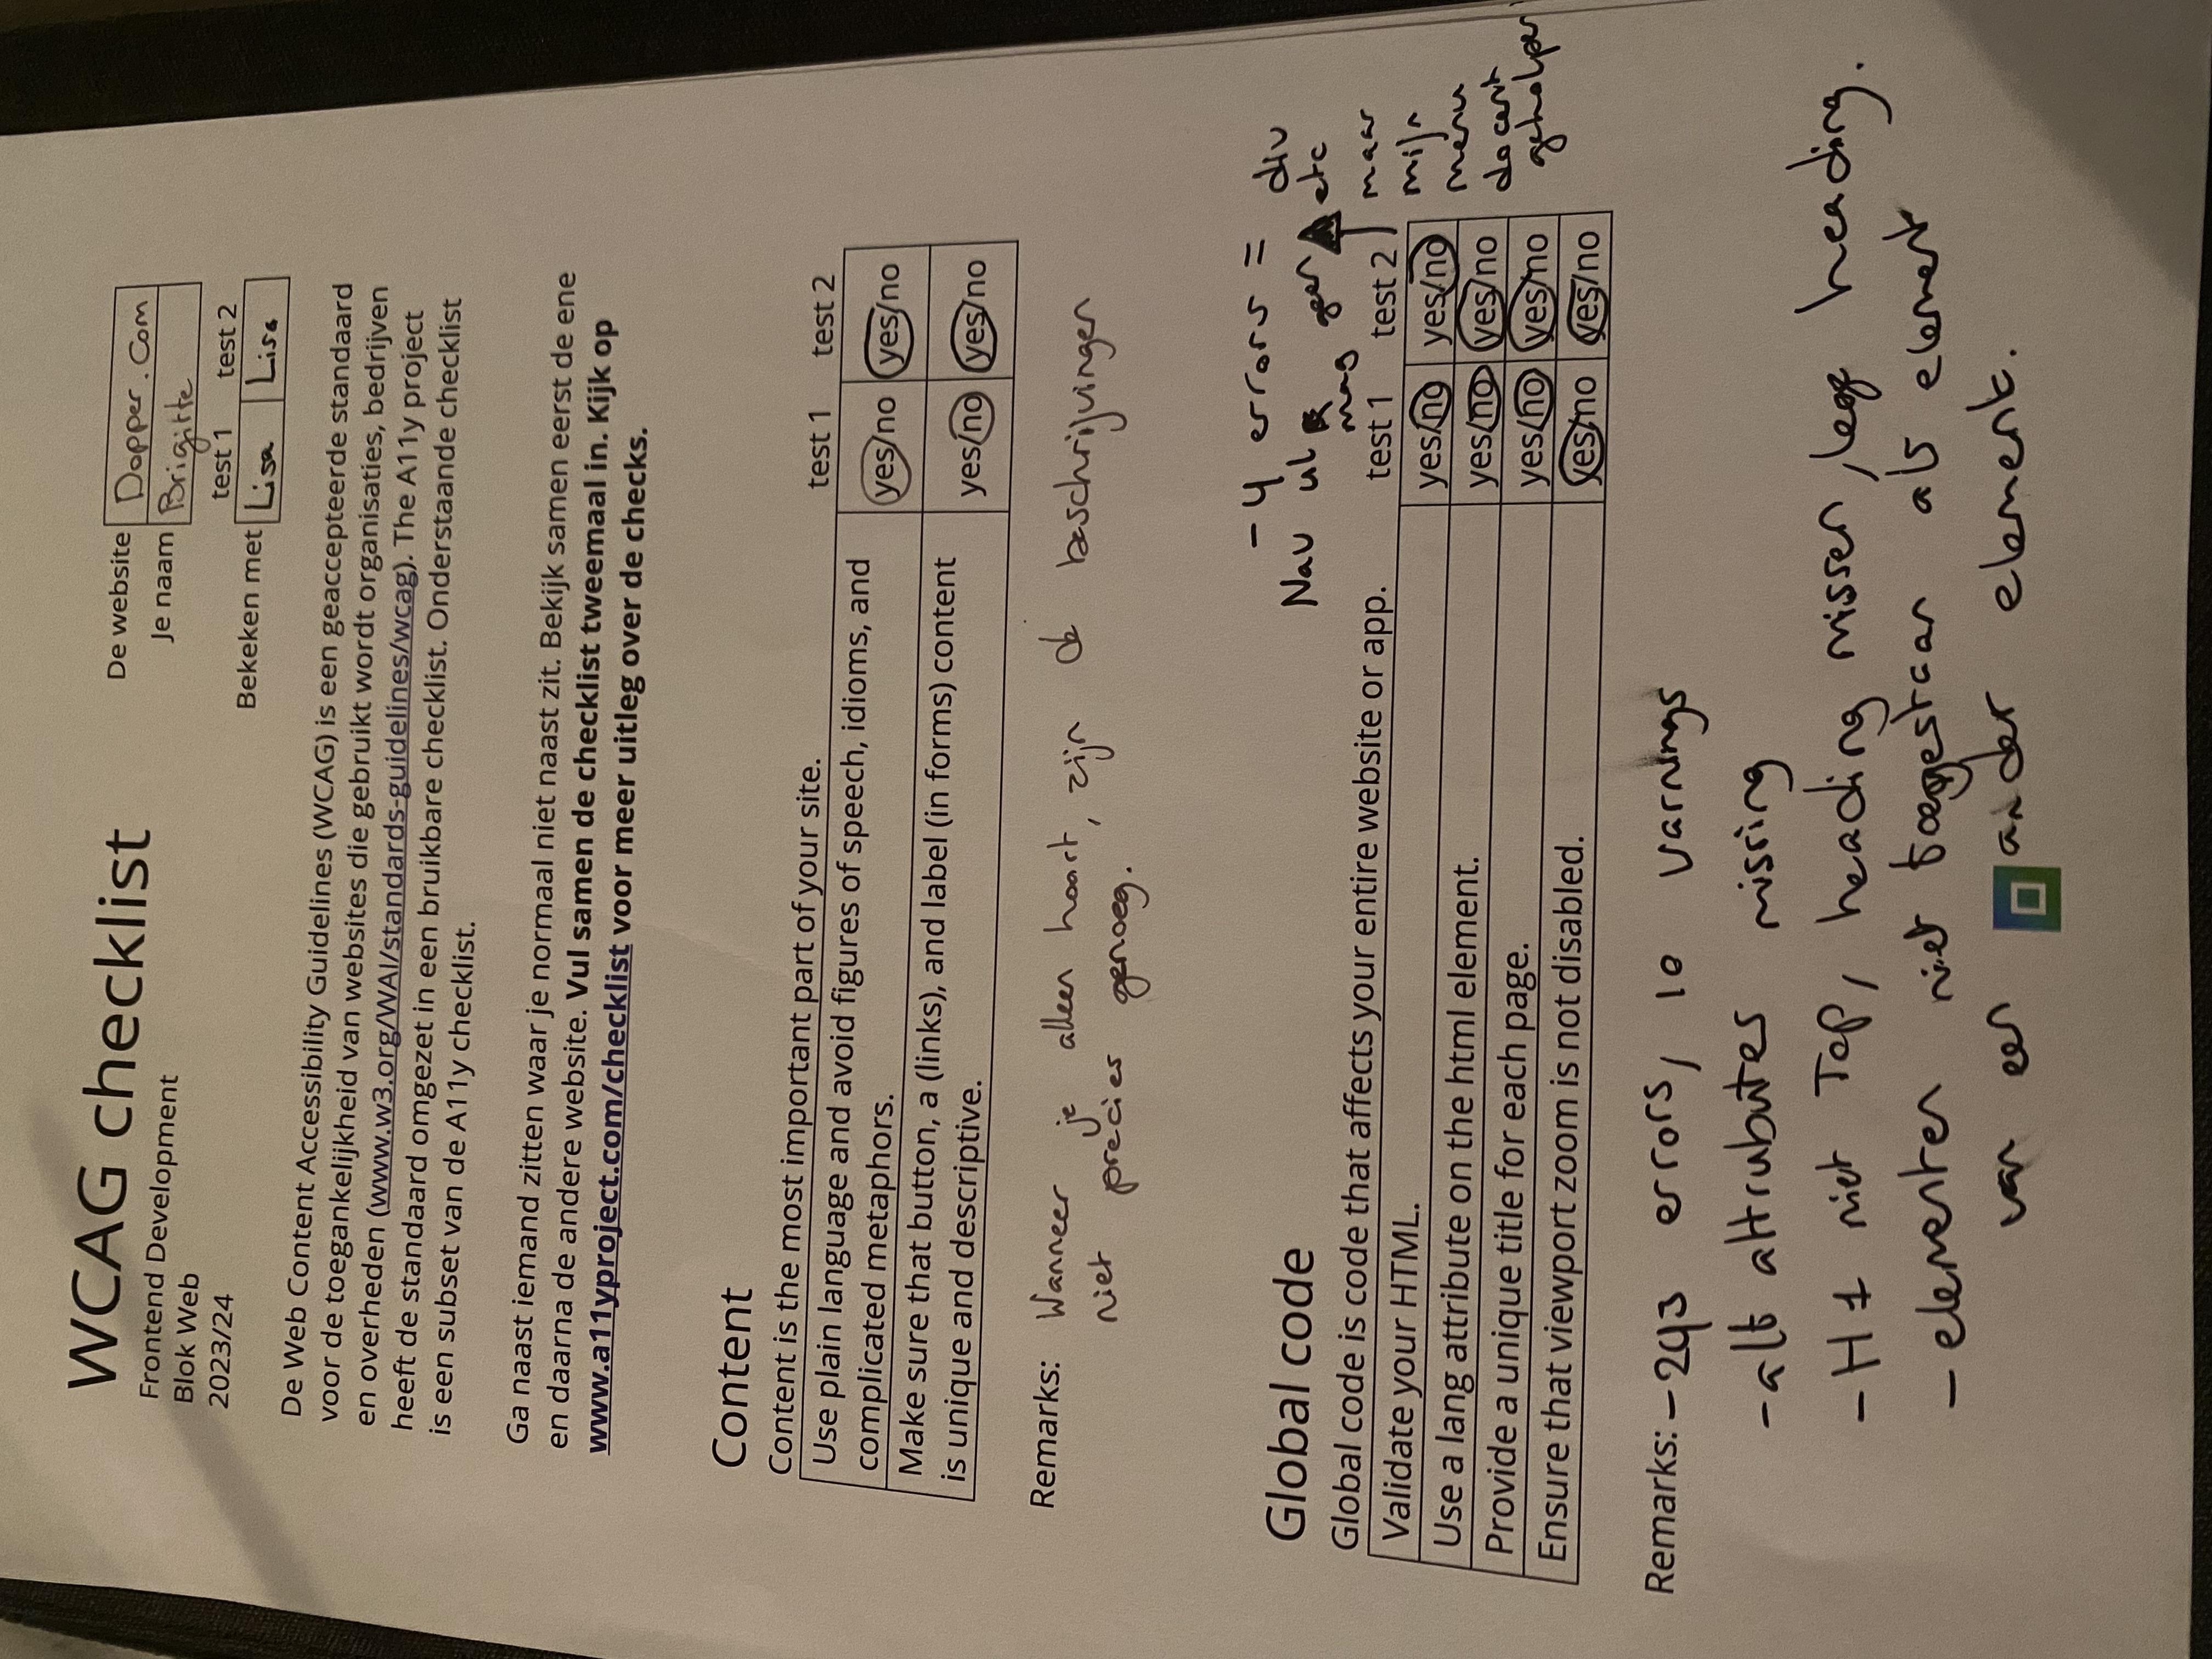 WCAG checklist
Frontend Development
Blok Web
2023/24
De website Dopper.Com
Je naam Brigitte
test 1 test 2
Bekeken met Lisa Lisa
De Web Content Accessibility Guidelines (WCAG) is een geaccepteerde standaard
voor de toegankelijkheid van websites die gebruikt wordt organisaties, bedrijven
en overheden (www.w3.org/WAI/standards-guidelines/wcag). The A11y project
heeft de standaard omgezet in een bruikbare checklist. Onderstaande checklist
is een subset van de A11y checklist.
Ga naast iemand zitten waar je normaal niet naast zit. Bekijk samen eerst de ene
en daarna de andere website. Vul samen de checklist tweemaal in. Kijk op
www.a11yproject.com/checklist voor meer uitleg over de checks.
Content
Content is the most important part of your site.
test 1 test 2
Use plain language and avoid figures of speech, idioms, and
complicated metaphors.
yes/no yes/no
Make sure that button, a (links), and label (in forms) content
is unique and descriptive.
yes/no yes/no
Remarks: Wanneer je alleen hoort, zijn de beschrijvingen
niet precies genoeg.
- 4 errors = div
Nav ul mag geen etc
maar
mijn
menu
docent
geholpen
Global code
Global code is code that affects your entire website or app.
test 1 test 2
Validate your HTML. yes/no yes/no
Use a lang attribute on the html element. yes/no yes/no
Provide a unique title for each page. yes/no yes/no
Ensure that viewport zoom is not disabled. yes/no yes/no
Remarks: - 293 errors, 10 varnings
- alt attrubutes missing
- H1 niet Top, heading missen, leeg heading.
- elementen niet toegestaan als element
van een ander element.